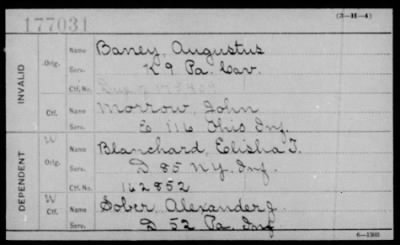 177031
(3-H-4)
INVALID
Orig.
Name Baney, Augustus
Serv. K 9 Pa. Cav.
Ctf. No.
Ctf.
Name Morrow, John
Serv. E 116 Ohio Inf.
DEPENDENT
W
Orig.
Name Blanchard, Elisha T.
Serv. D 85 N.Y. Inf.
Ctf. No. 162852
W
Ctf.
Name Sober, Alexander J.
Serv. D 52 Pa Inf